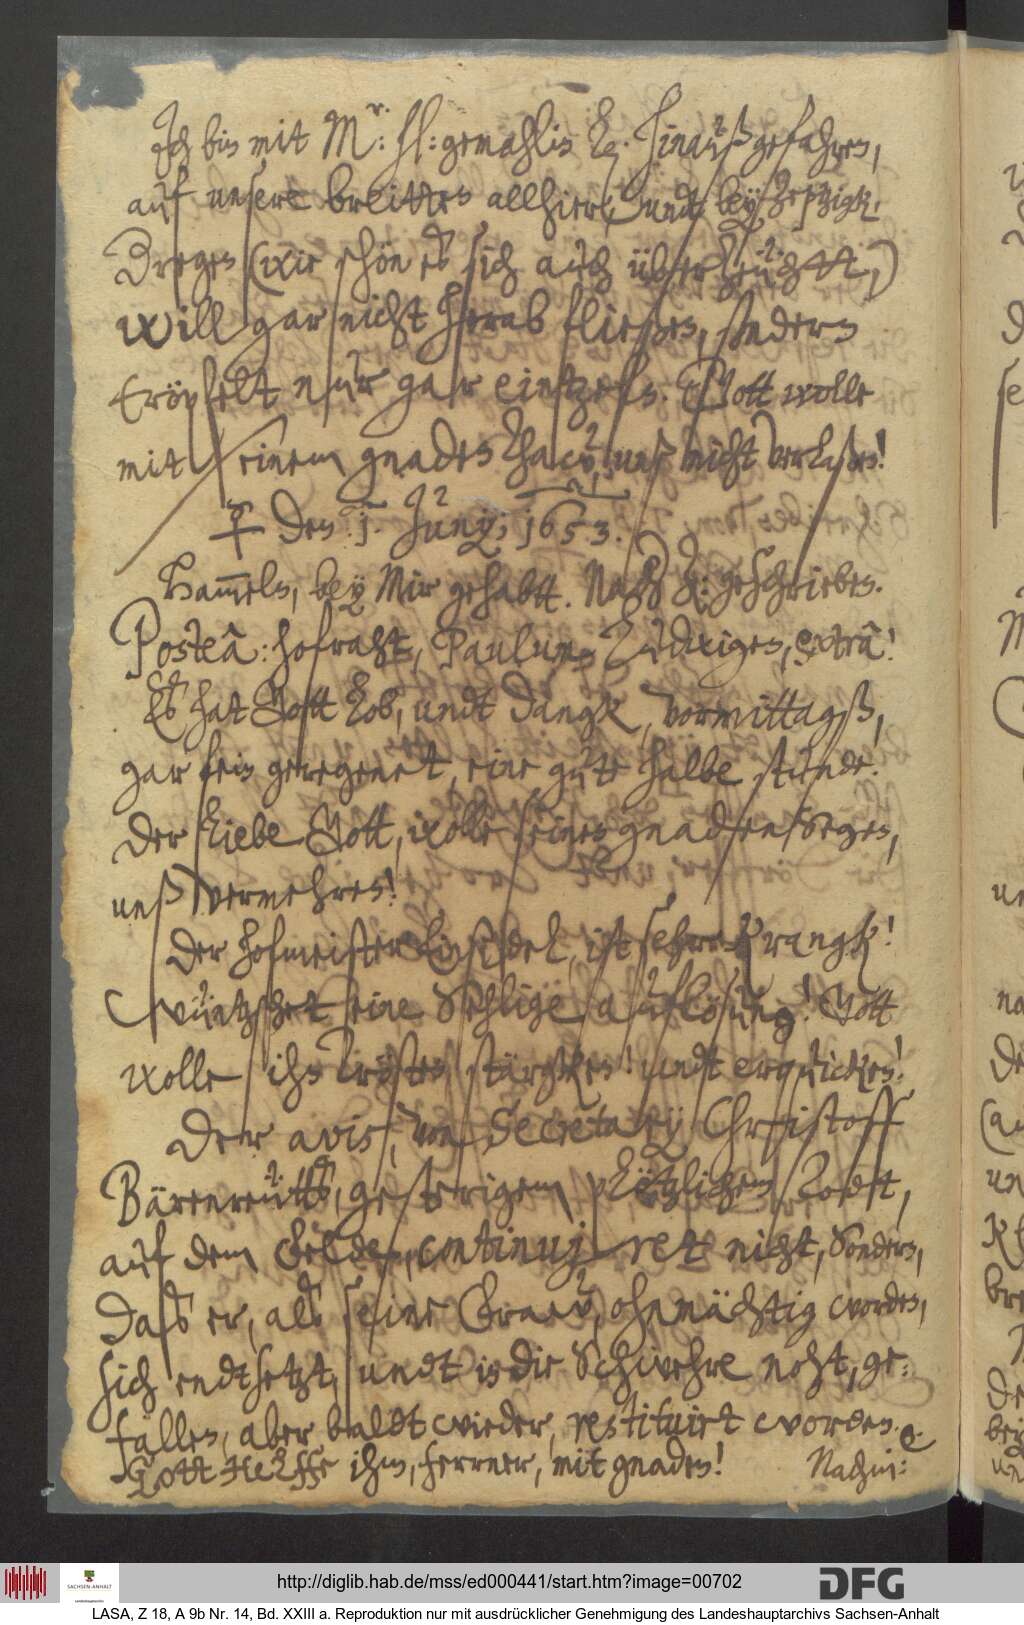 Ich bin mit M:r hl: gemahlin L. hinauß gefahren,
auf unsere breitten allhier, undt bey Zeptzigk.
Der regen (wie schön es sich auch überzeücht,)
will gar nicht herab fließen, sondern
tröpfelt nur gar eintzeln. Gott wolle
mit seinem gnaden thaw unß nicht verlaßen!
den 1. Junij, 1653.
Hammeln, bey Mir gehabtt. Nach geschrieben.
Posteâ: hofraht, Paulum Ludwigen, extrâ!
Es hat Gott lob, undt dangk, vormittagß,
gar fein geregenet, eine gute halbe stunde.
der liebe Gott, wolle seinen gnaden Segen,
unß vermehren!
Der hofmeister Einsidel, ist sehr krangk!
Wüntzschet eine Sehlige auflosung! Gott
wolle ihn trösten, stärgken! undt erquicken!
Der avis, von Secretary Christoff
Bärenreütts, gesterigem plötzlichem Todt,
auf dem felde, continuiret nicht, Sondern,
daß er, alß seine Fraw, ohnmächtig worden,
sich endtsetzt, undt in die Schwehre noht, ge-
fallen, aber baldt wieder, restituirt worden.
Gott helffe ihm, ferner, mit gnaden! Nachmi:
http://diglib.hab.de/mss/ed000441/start.htm?image=00702
SACHSEN-ANHALT
DFG
LASA, Z 18, A 9b Nr. 14, Bd. XXIII a. Reproduktion nur mit ausdrücklicher Genehmigung des Landeshauptarchivs Sachsen-Anhalt